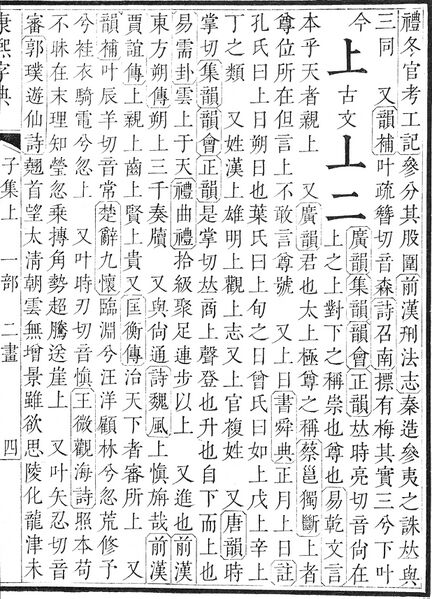 禮冬官考工記參分其股圍前漢刑法志秦造參夷之誅𠀤與
三同 又韻補叶疏簪切音森詩召南摽有梅其實三兮下叶
今
上 古文 丄二
廣韻集韻韻會正韻𠀤時亮切音尙在
上之上對下之稱崇也尊也易乾文言
本乎天者親上 又廣韻君也太上極尊之稱蔡邕獨斷上者
尊位所在但言上不敢言尊號 又上日書舜典正月上日註
孔氏曰上日朔日也葉氏曰上旬之日曾氏曰如上戊上辛上
丁之類 又姓漢上雄明上觀上志又上官複姓 又唐韻時
掌切集韻韻會正韻是掌切𠀤商上聲登也升也自下而上也
易需卦雲上于天禮曲禮拾級聚足連步以上 又進也前漢
東方朔傳朔上三千奏牘 又與尚通詩魏風上愼旃哉前漢
賈誼傳上親上齒上賢上貴又匡衡傳治天下者審所上 又
韻補叶辰羊切音常楚辭九懷臨淵兮汪洋顧林兮忽荒修予
兮袿衣騎電兮忽上 又叶時刃切音愼王微觀海詩照本苟
不昧在末理知瑩忽乘摶角勢超騰送崖上 又叶矢忍切音
審郭璞遊仙詩翹首望太淸朝雲無增景雖欲思陵化龍津未
康熙字典 子集上 一部 二畫 四